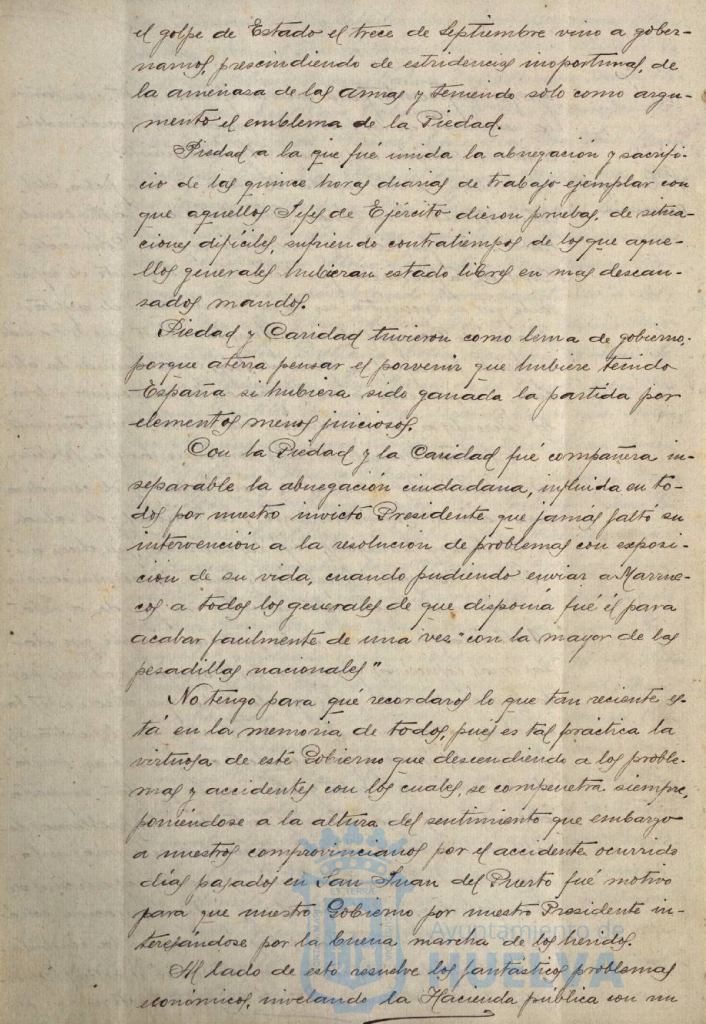 el golpe de Estado el trece de Septiembre vino a gober-
narnos, prescindiendo de estridencias inoportunas, de
la amenasa de las armas y teniendo sólo como argu-
mento el emblema de la Piedad.
Piedad a la que fué unida la abnegación y sacrifi-
cio de las quince horas diarias de trabajo ejemplar con
que aquellos Jefes de Ejército dieron pruebas, de situa-
ciones difíciles, sufriendo contratiempos de los que aque-
llos generales hubieran estado libres en mas descan-
sados mandos.
Piedad y Caridad tuvieron como lema de gobierno,
porque aterra pensar el porvenir que hubiere tenido
España si hubiera sido ganada la partida por
elementos menos juiciosos.
Con la Piedad y la Caridad fué compañera in-
separable la abnegación ciudadana, influida en to-
dos por nuestro invicto Presidente que jamás faltó su
intervención a la resolución de problemas con exposi-
ción de su vida, cuando pudiendo enviar a Marrue-
cos a todos los generales de que disponía fué él para
acabar facilmente de una vez "con la mayor de las
pesadillas nacionales"
No tengo para qué recordaros lo que tan reciente es-
tá en la memoria de todos, pues es tal práctica la
virtuosa de este Gobierno que descendiendo a los proble-
mas y accidentes con los cuales, se compenetra siempre,
poniéndose a la altura del sentimiento que embargo
a nuestros comprovincianos por el accidente ocurrido
días pasados en San Juan del Puerto fué motivo
para que nuestro Gobierno por nuestro Presidente in-
teresándose por la buena marcha de los heridos.
Al lado de esto resuelve los fantásticos problemas
económicos, nivelando la Hacienda publica con un
Ayuntamiento de
HUELVA